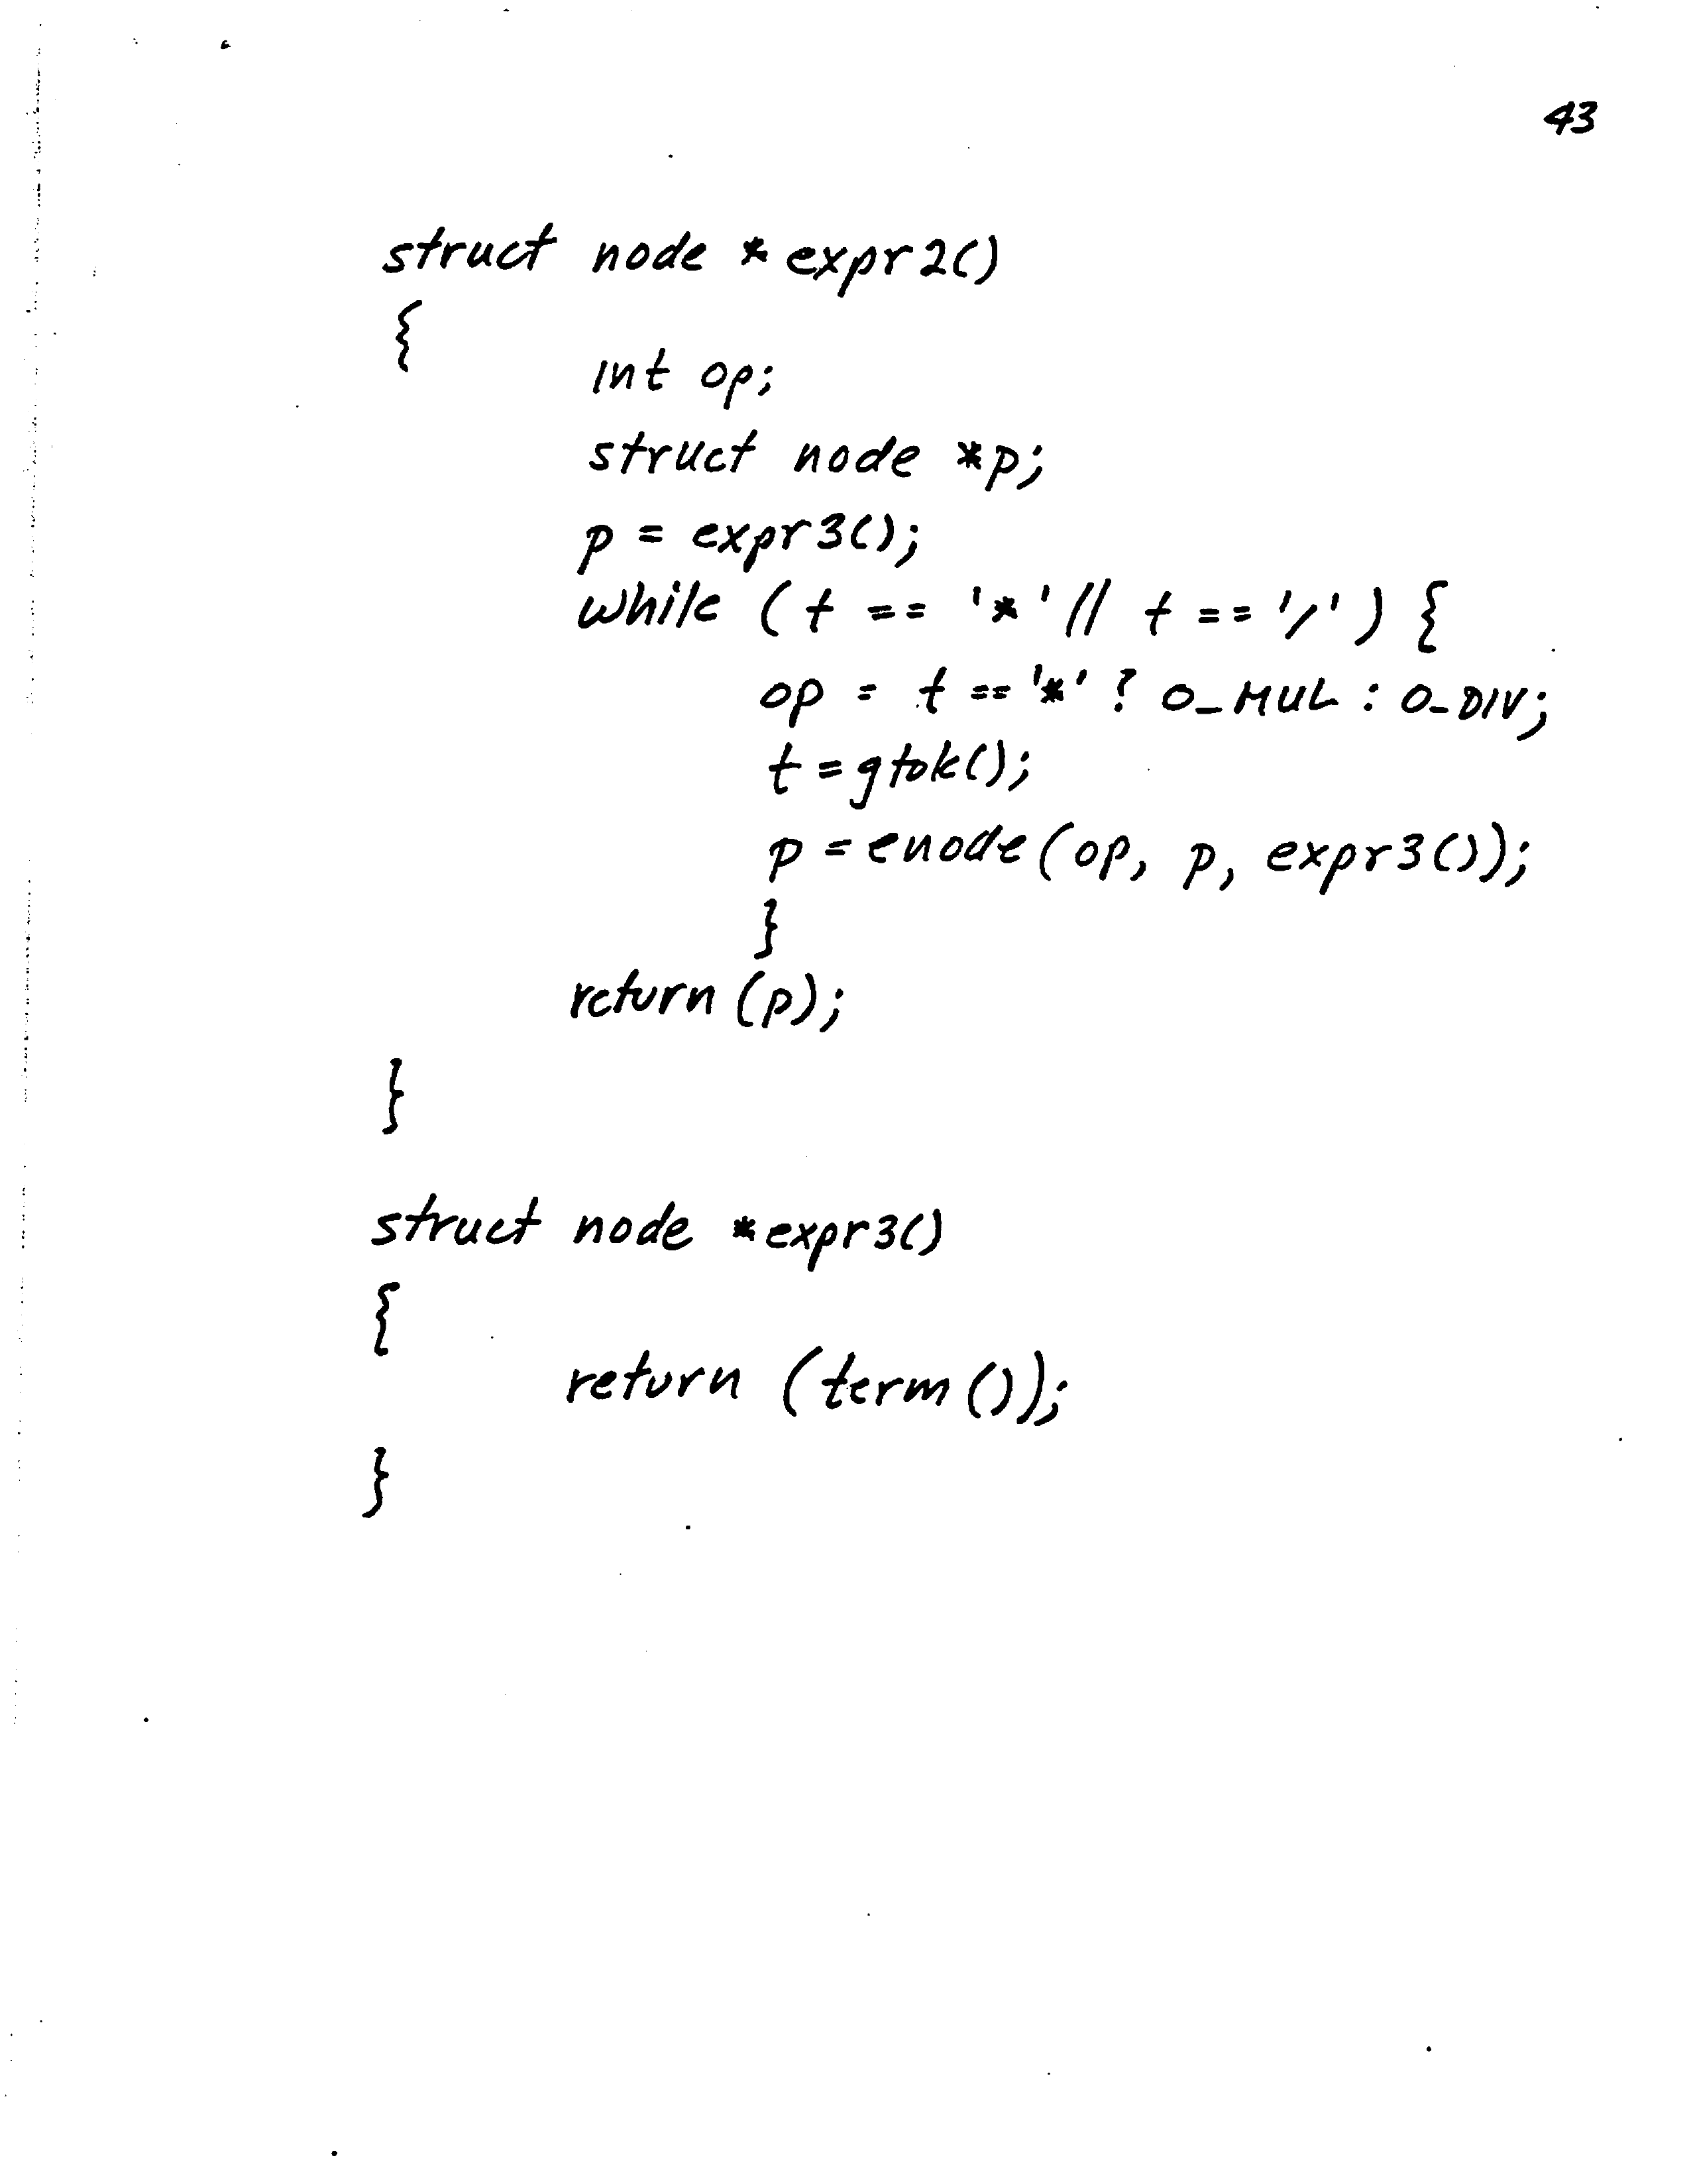 43
struct node *expr2()
{
int op;
struct node *p;
p = expr3();
while (t == '*' || t == '/') {
op = t == '*' ? O_MUL : O_DIV;
t = gtok();
p = enode(op, p, expr3());
}
return (p);
}
struct node *expr3()
{
return (term());
}